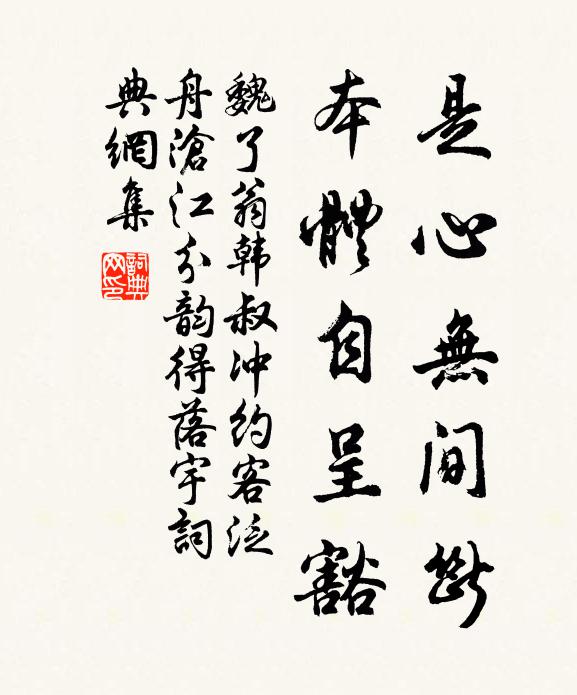 是心無間斷
本體自呈豁
魏了翁韩叔冲约客泛
舟滄江分韵得落字詞
典網集
詞典网印